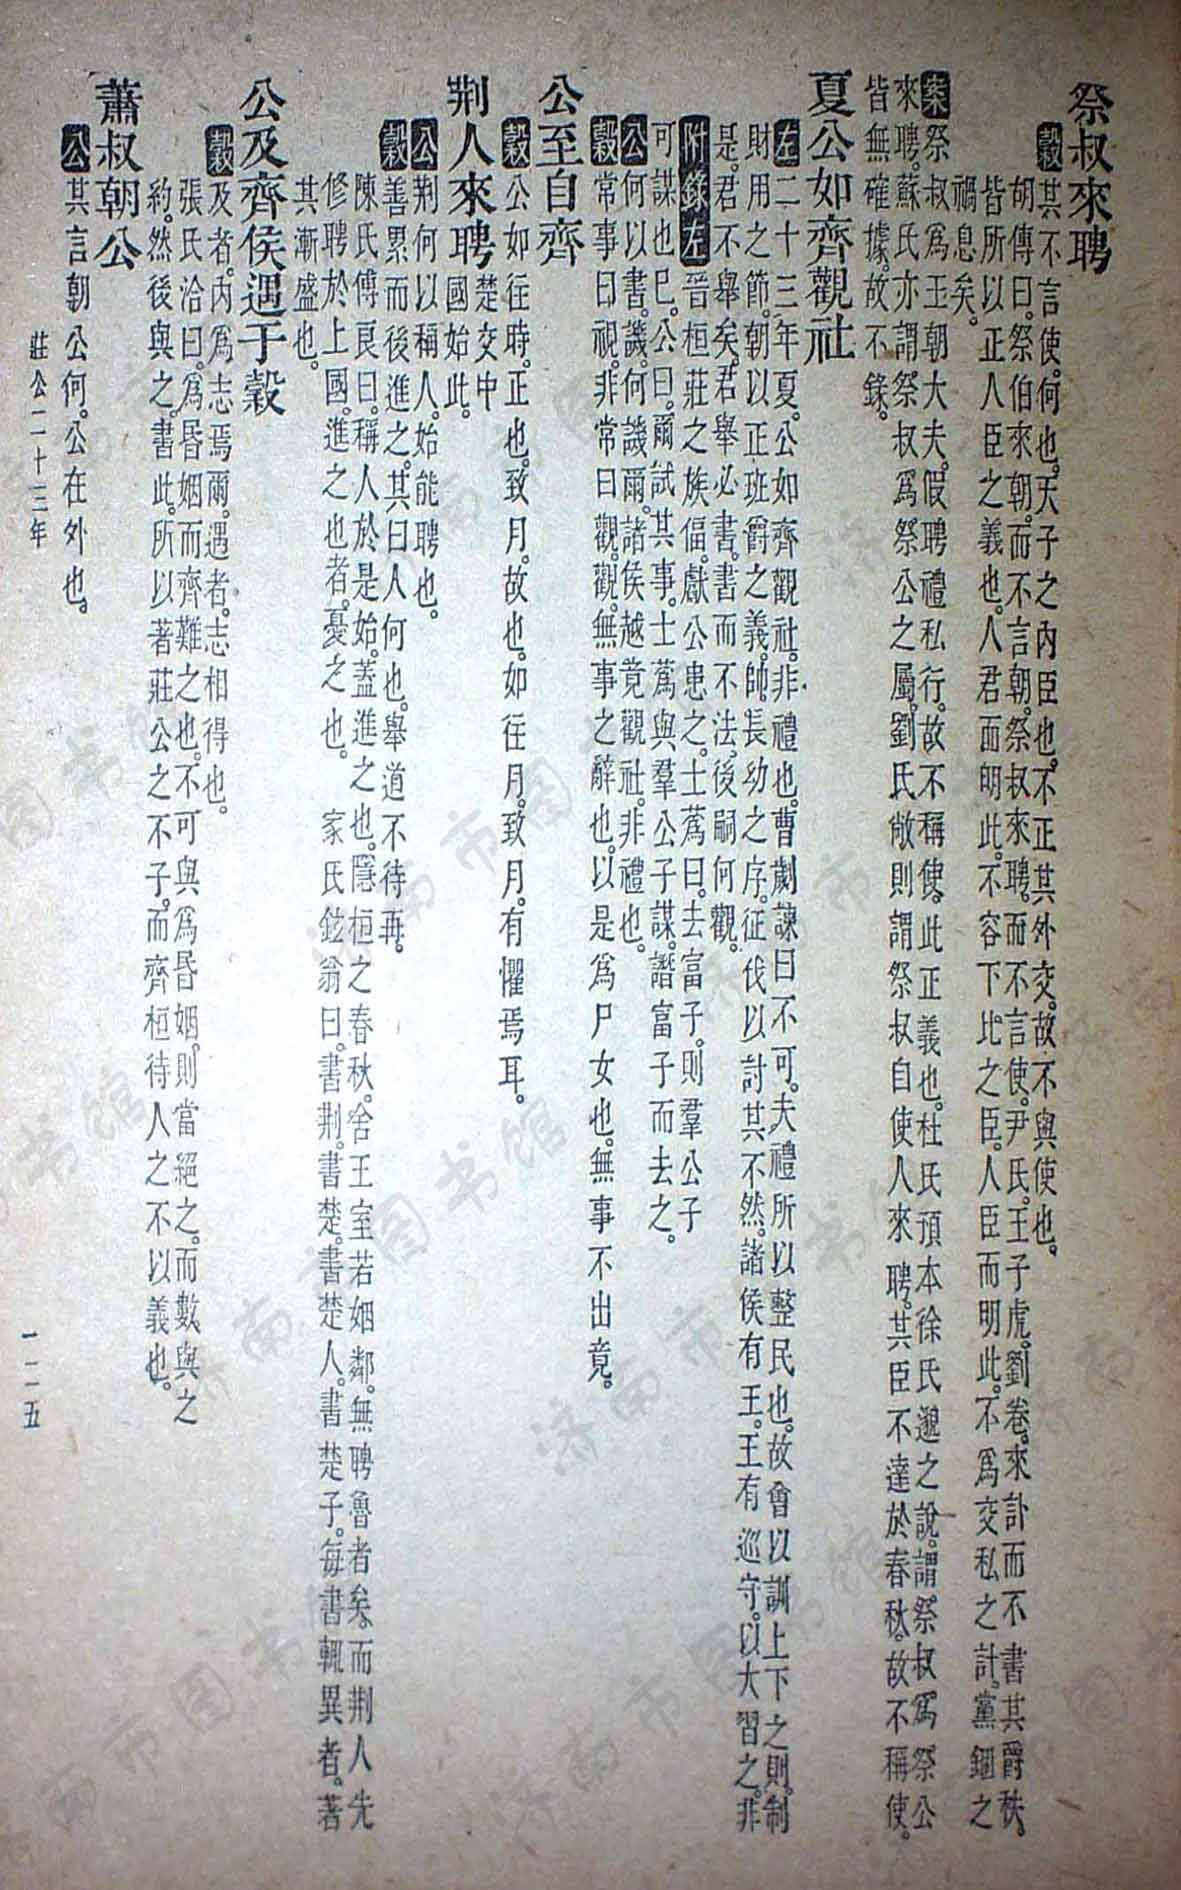 祭叔來聘
穀其不言使何也。天子之內臣也。不正其外交。故不與使也。
胡傳曰。祭伯來朝。而不言朝。祭叔來聘。而不言使。尹氏。王子虎。劉卷。來訃而不書其爵秩。
皆所以正人臣之義也。人君而明此。不容下比之臣。人臣而明此。不爲交私之計。黨錮之
禍息矣。
案祭叔爲王朝大夫。假聘禮私行。故不稱使。此正義也。杜氏預本徐氏邈之說。謂祭叔爲祭公
來聘。蘇氏亦謂祭叔爲祭公之屬。劉氏敞則謂祭叔自使人來聘。其臣不達於春秋。故不稱使。
皆無確據。故不錄。
夏公如齊觀社
左二十三年夏。公如齊觀社。非禮也。曹劌諫曰不可。夫禮所以整民也。故會以訓上下之則。制
財用之節。朝以正班爵之義。帥長幼之序。征伐以討其不然。諸侯有王。王有巡守。以大習之。非
是。君不舉矣。君舉必書。書而不法。後嗣何觀。
附錄左晉桓莊之族偪。獻公患之。士蔿曰。去富子。則羣公子
可謀也已。公曰。爾試其事。士蔿與羣公子謀。譖富子而去之。
公何以書。譏。何譏爾。諸侯越竟觀社。非禮也。
穀常事曰視。非常曰觀。觀。無事之辭也。以是爲尸女也。無事不出竟。
公至自齊
穀公如往時。正也。致月。故也。如往月。致月。有懼焉耳。
荆人來聘楚交中
國始此。
公荆何以稱人。始能聘也。
穀善累而後進之。其曰人何也。舉道不待再。
陳氏傅良曰。稱人於是始。蓋進之也。隱桓之春秋。舍王室若姻鄰。無聘魯者矣。而荆人先
修聘於上國。進之也者。憂之也。　家氏鉉翁曰。書荆。書楚。書楚人。書楚子。每書輒異者。著
其漸盛也。
公及齊侯遇于穀
穀及者。內爲志焉爾。遇者。志相得也。
張氏洽曰。爲昏姻而齊難之也。不可與爲昏姻。則當絕之。而數與之
約。然後與之。書此。所以著莊公之不子。而齊桓待人之不以義也。
蕭叔朝公
公其言朝公何。公在外也。
莊公二十三年
一二五